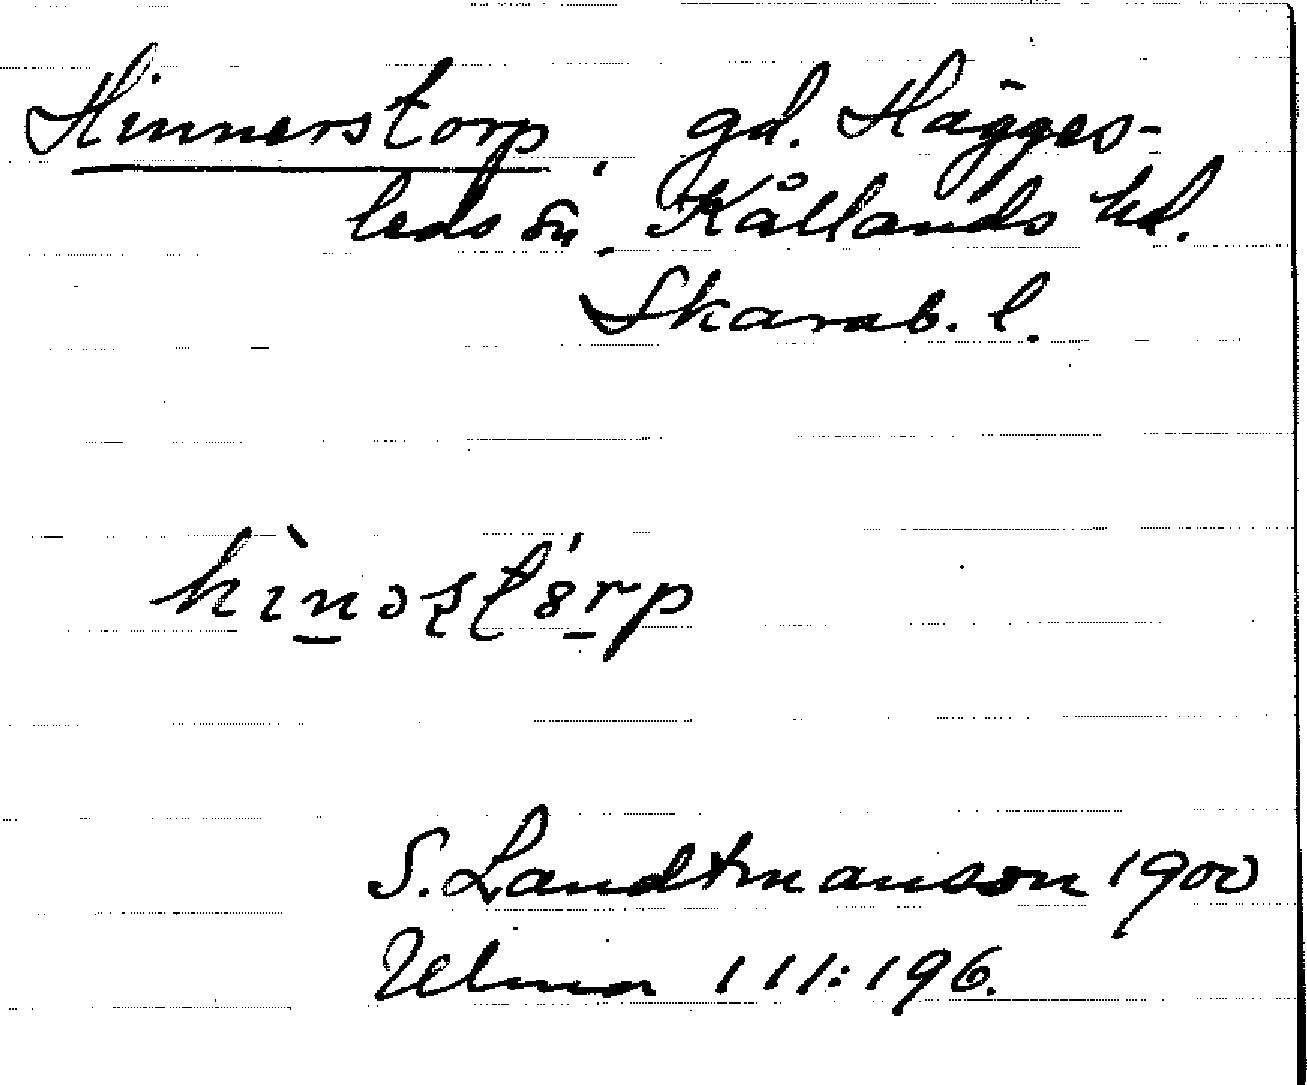 Hinnerstorp, gd. Hägges-
leds sn, Kållands hd.
Skarab. l.
S. Landtmanson 1900
Ulma 111:196.